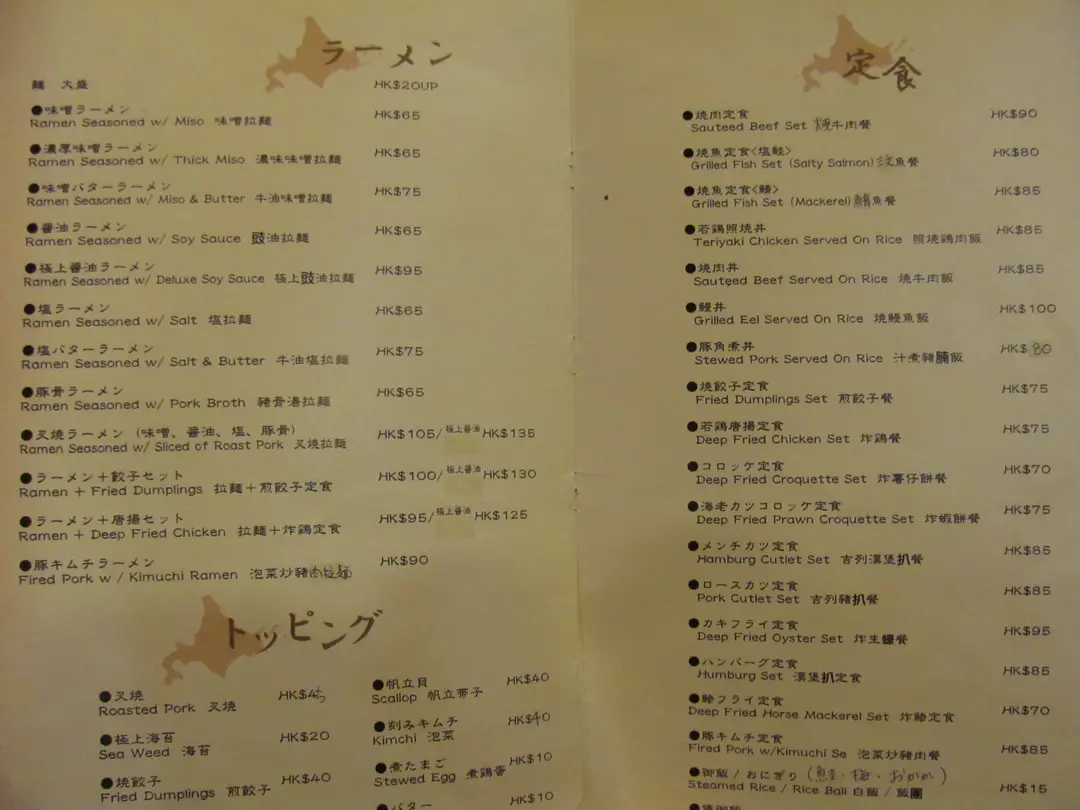 ラーメン
麺 大盛 HK$20UP
●味噌ラーメン HK$65
Ramen Seasoned w/ Miso 味噌拉麵
●濃厚味噌ラーメン HK$65
Ramen Seasoned w/ Thick Miso 濃味味噌拉麵
●味噌バターラーメン HK$75
Ramen Seasoned w/ Miso & Butter 牛油味噌拉麵
●醤油ラーメン HK$65
Ramen Seasoned w/ Soy Sauce 豉油拉麵
●極上醤油ラーメン HK$95
Ramen Seasoned w/ Deluxe Soy Sauce 極上豉油拉麵
●塩ラーメン HK$65
Ramen Seasoned w/ Salt 塩拉麵
●塩バターラーメン HK$75
Ramen Seasoned w/ Salt & Butter 牛油塩拉麵
●豚骨ラーメン HK$65
Ramen Seasoned w/ Pork Broth 豬骨湯拉麵
●叉焼ラーメン (味噌、醤油、塩、豚骨) HK$105/極上醤油HK$135
Ramen Seasoned w/ Sliced of Roast Pork 叉燒拉麵
●ラーメン+餃子セット HK$100/極上醤油HK$130
Ramen + Fried Dumplings 拉麵+煎餃子定食
●ラーメン+唐揚セット HK$95/極上醤油HK$125
Ramen + Deep Fried Chicken 拉麵+炸鶏定食
●豚キムチラーメン HK$90
Fired Pork w / Kimuchi Ramen 泡菜炒豬肉拉麵
トッピング
●叉焼 HK$45
Roasted Pork 叉燒
●極上海苔 HK$20
Sea Weed 海苔
●焼餃子 HK$40
Fried Dumplings 煎餃子
●帆立貝 HK$40
Scallop 帆立帯子
●刻みキムチ HK$40
Kimchi 泡菜
●煮たまご HK$10
Stewed Egg 煮鶏蛋
●バター HK$10
定食
●焼肉定食 HK$90
Sauteed Beef Set 燒牛肉餐
●焼魚定食<塩鮭> HK$80
Grilled Fish Set (Salty Salmon) 魚餐
●焼魚定食<鯖> HK$85
Grilled Fish Set (Mackerel) 鯖魚餐
●若鶏照焼丼 HK$85
Teriyaki Chicken Served On Rice 照燒鶏肉飯
●焼肉丼 HK$85
Sauteed Beef Served On Rice 燒牛肉飯
●鰻丼 HK$100
Grilled Eel Served On Rice 燒鰻魚飯
●豚角煮丼 HK$80
Stewed Pork Served On Rice 汁煮豬腩飯
●焼餃子定食 HK$75
Fried Dumplings Set 煎餃子餐
●若鶏唐揚定食 HK$75
Deep Fried Chicken Set 炸鶏餐
●コロッケ定食 HK$70
Deep Fried Croquette Set 炸薯仔餅餐
●海老カツコロッケ定食 HK$75
Deep Fried Prawn Croquette Set 炸蝦餅餐
●メンチカツ定食 HK$85
Hamburg Cutlet Set 吉列漢堡扒餐
●ロースカツ定食 HK$85
Pork Cutlet Set 吉列豬扒餐
●カキフライ定食 HK$95
Deep Fried Oyster Set 炸生蠔餐
●ハンバーグ定食 HK$85
Humburg Set 漢堡扒定食
●鯵フライ定食 HK$70
Deep Fried Horse Mackerel Set 炸鯵定食
●豚キムチ定食 HK$85
Fired Pork w/Kimuchi Se 泡菜炒豬肉餐
●御飯 / おにぎり (鮭・梅・おかか)
Steamed Rice / Rice Ball 白飯 / 飯團 HK$15